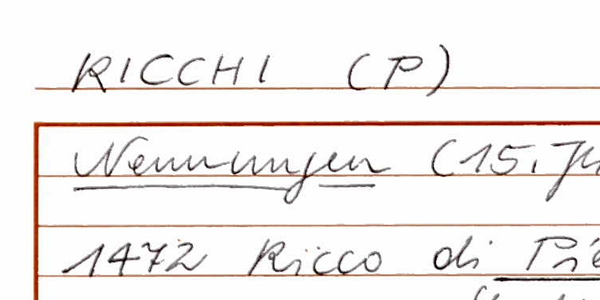 RICCHI (P)
Nennungen (15. Jh
1472 Ricco di Piè